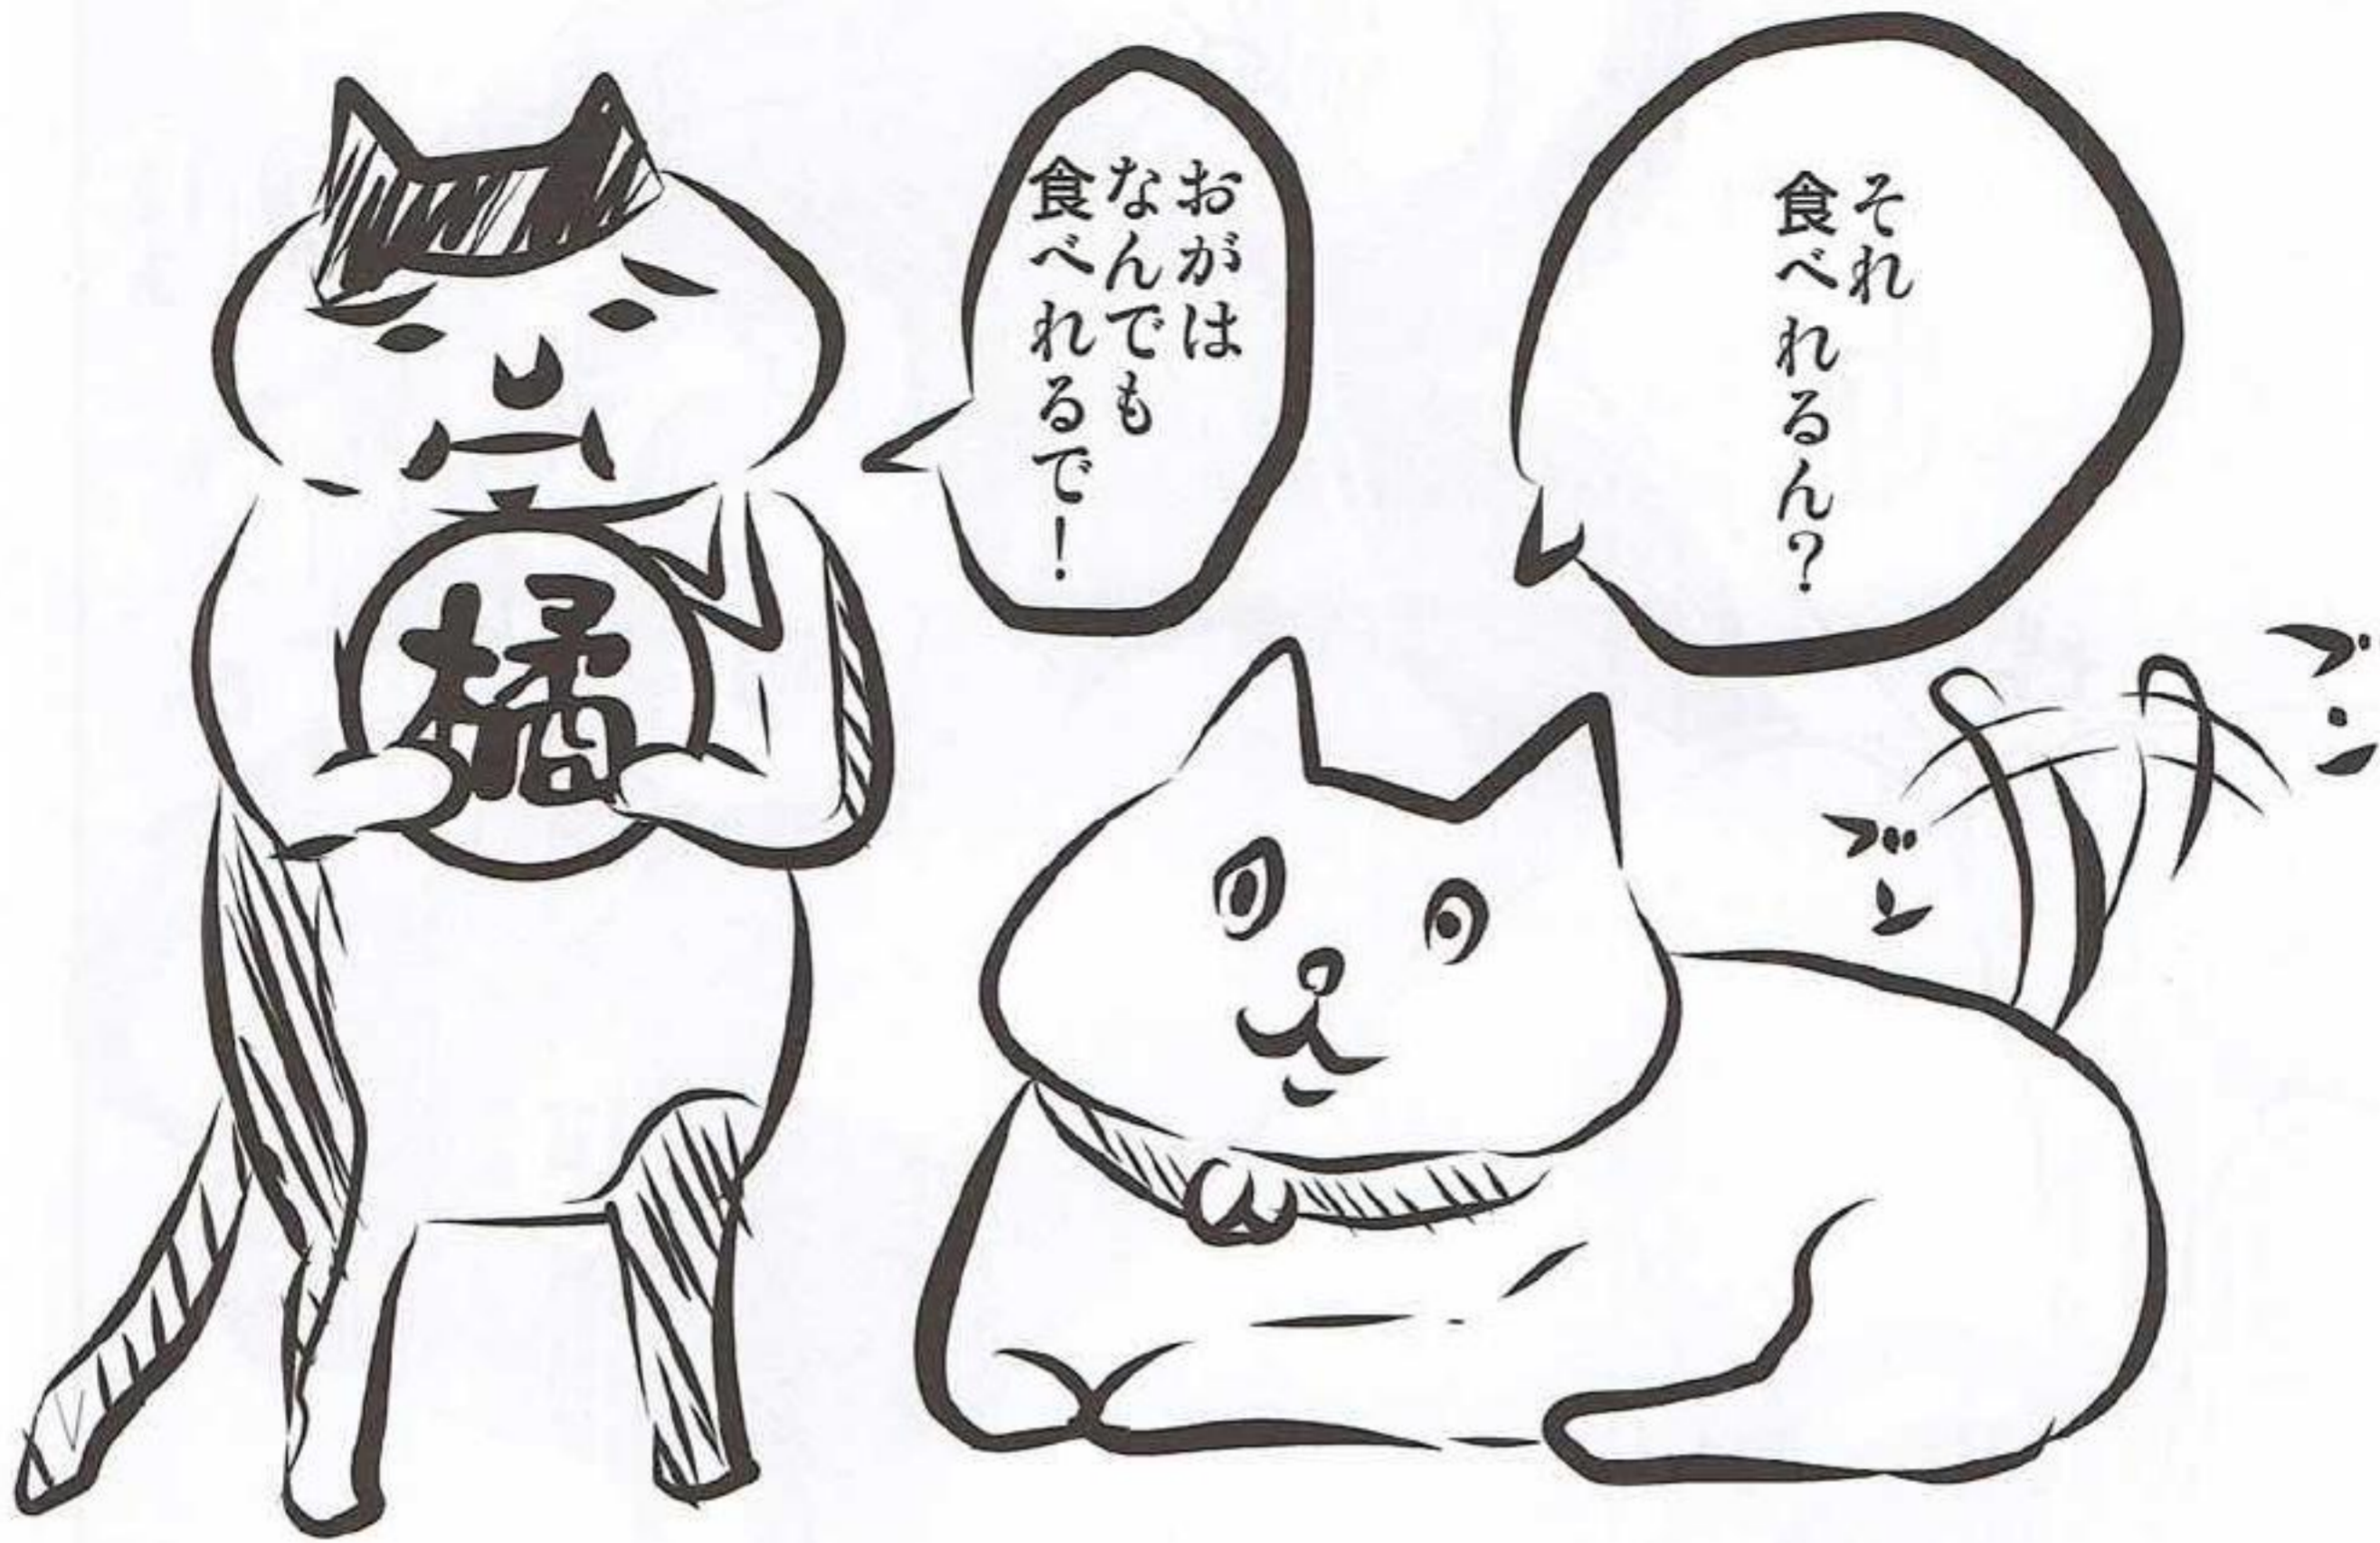 それ
食べれるん？
おがは
なんでも
食べれるで！
橘
ブン
ブン